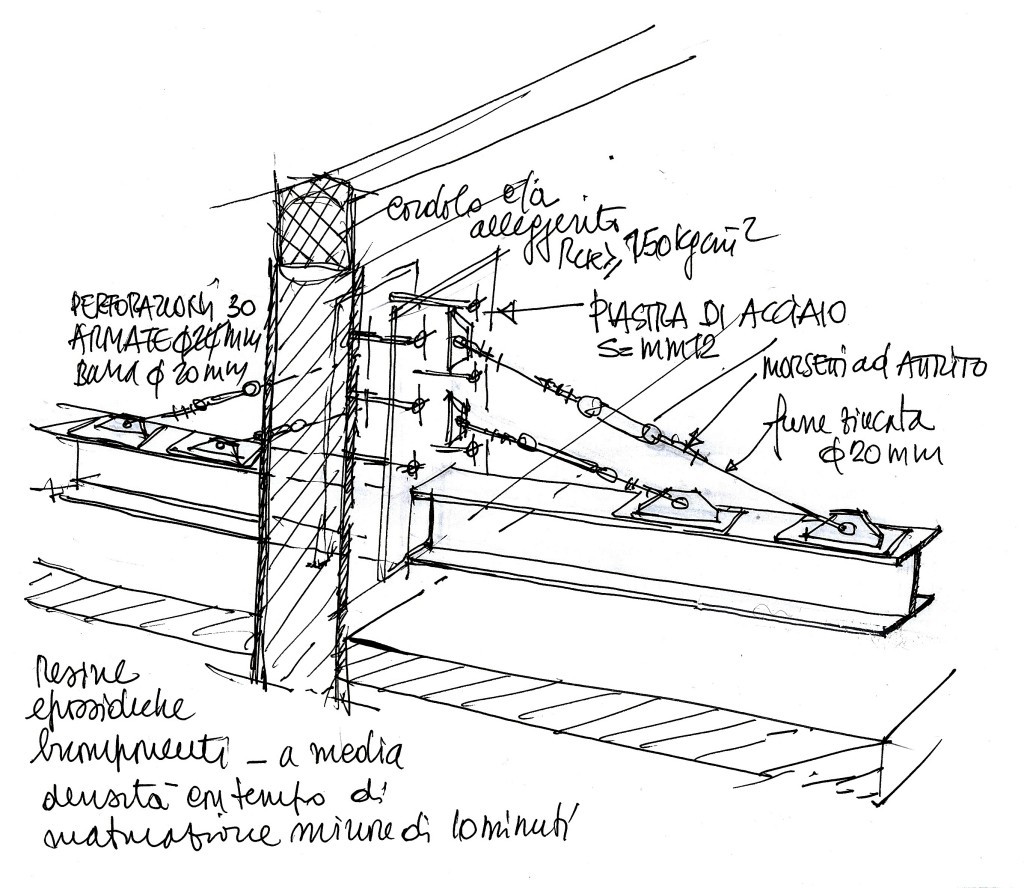 cordolo c/a
alleggerito
Rck ≥ 250 kg/cm²
PERFORAZIONI 30
ARMATE ϕ 24 mm
BARRA ϕ 20 mm
PIASTRA DI ACCIAIO
S = mm 12
MORSETTI ad ATTRITO
fune zincata
ϕ 20 mm
resine
epossidiche
bicomponenti – a media
densità con tempo di
maturazione minore di 10 minuti